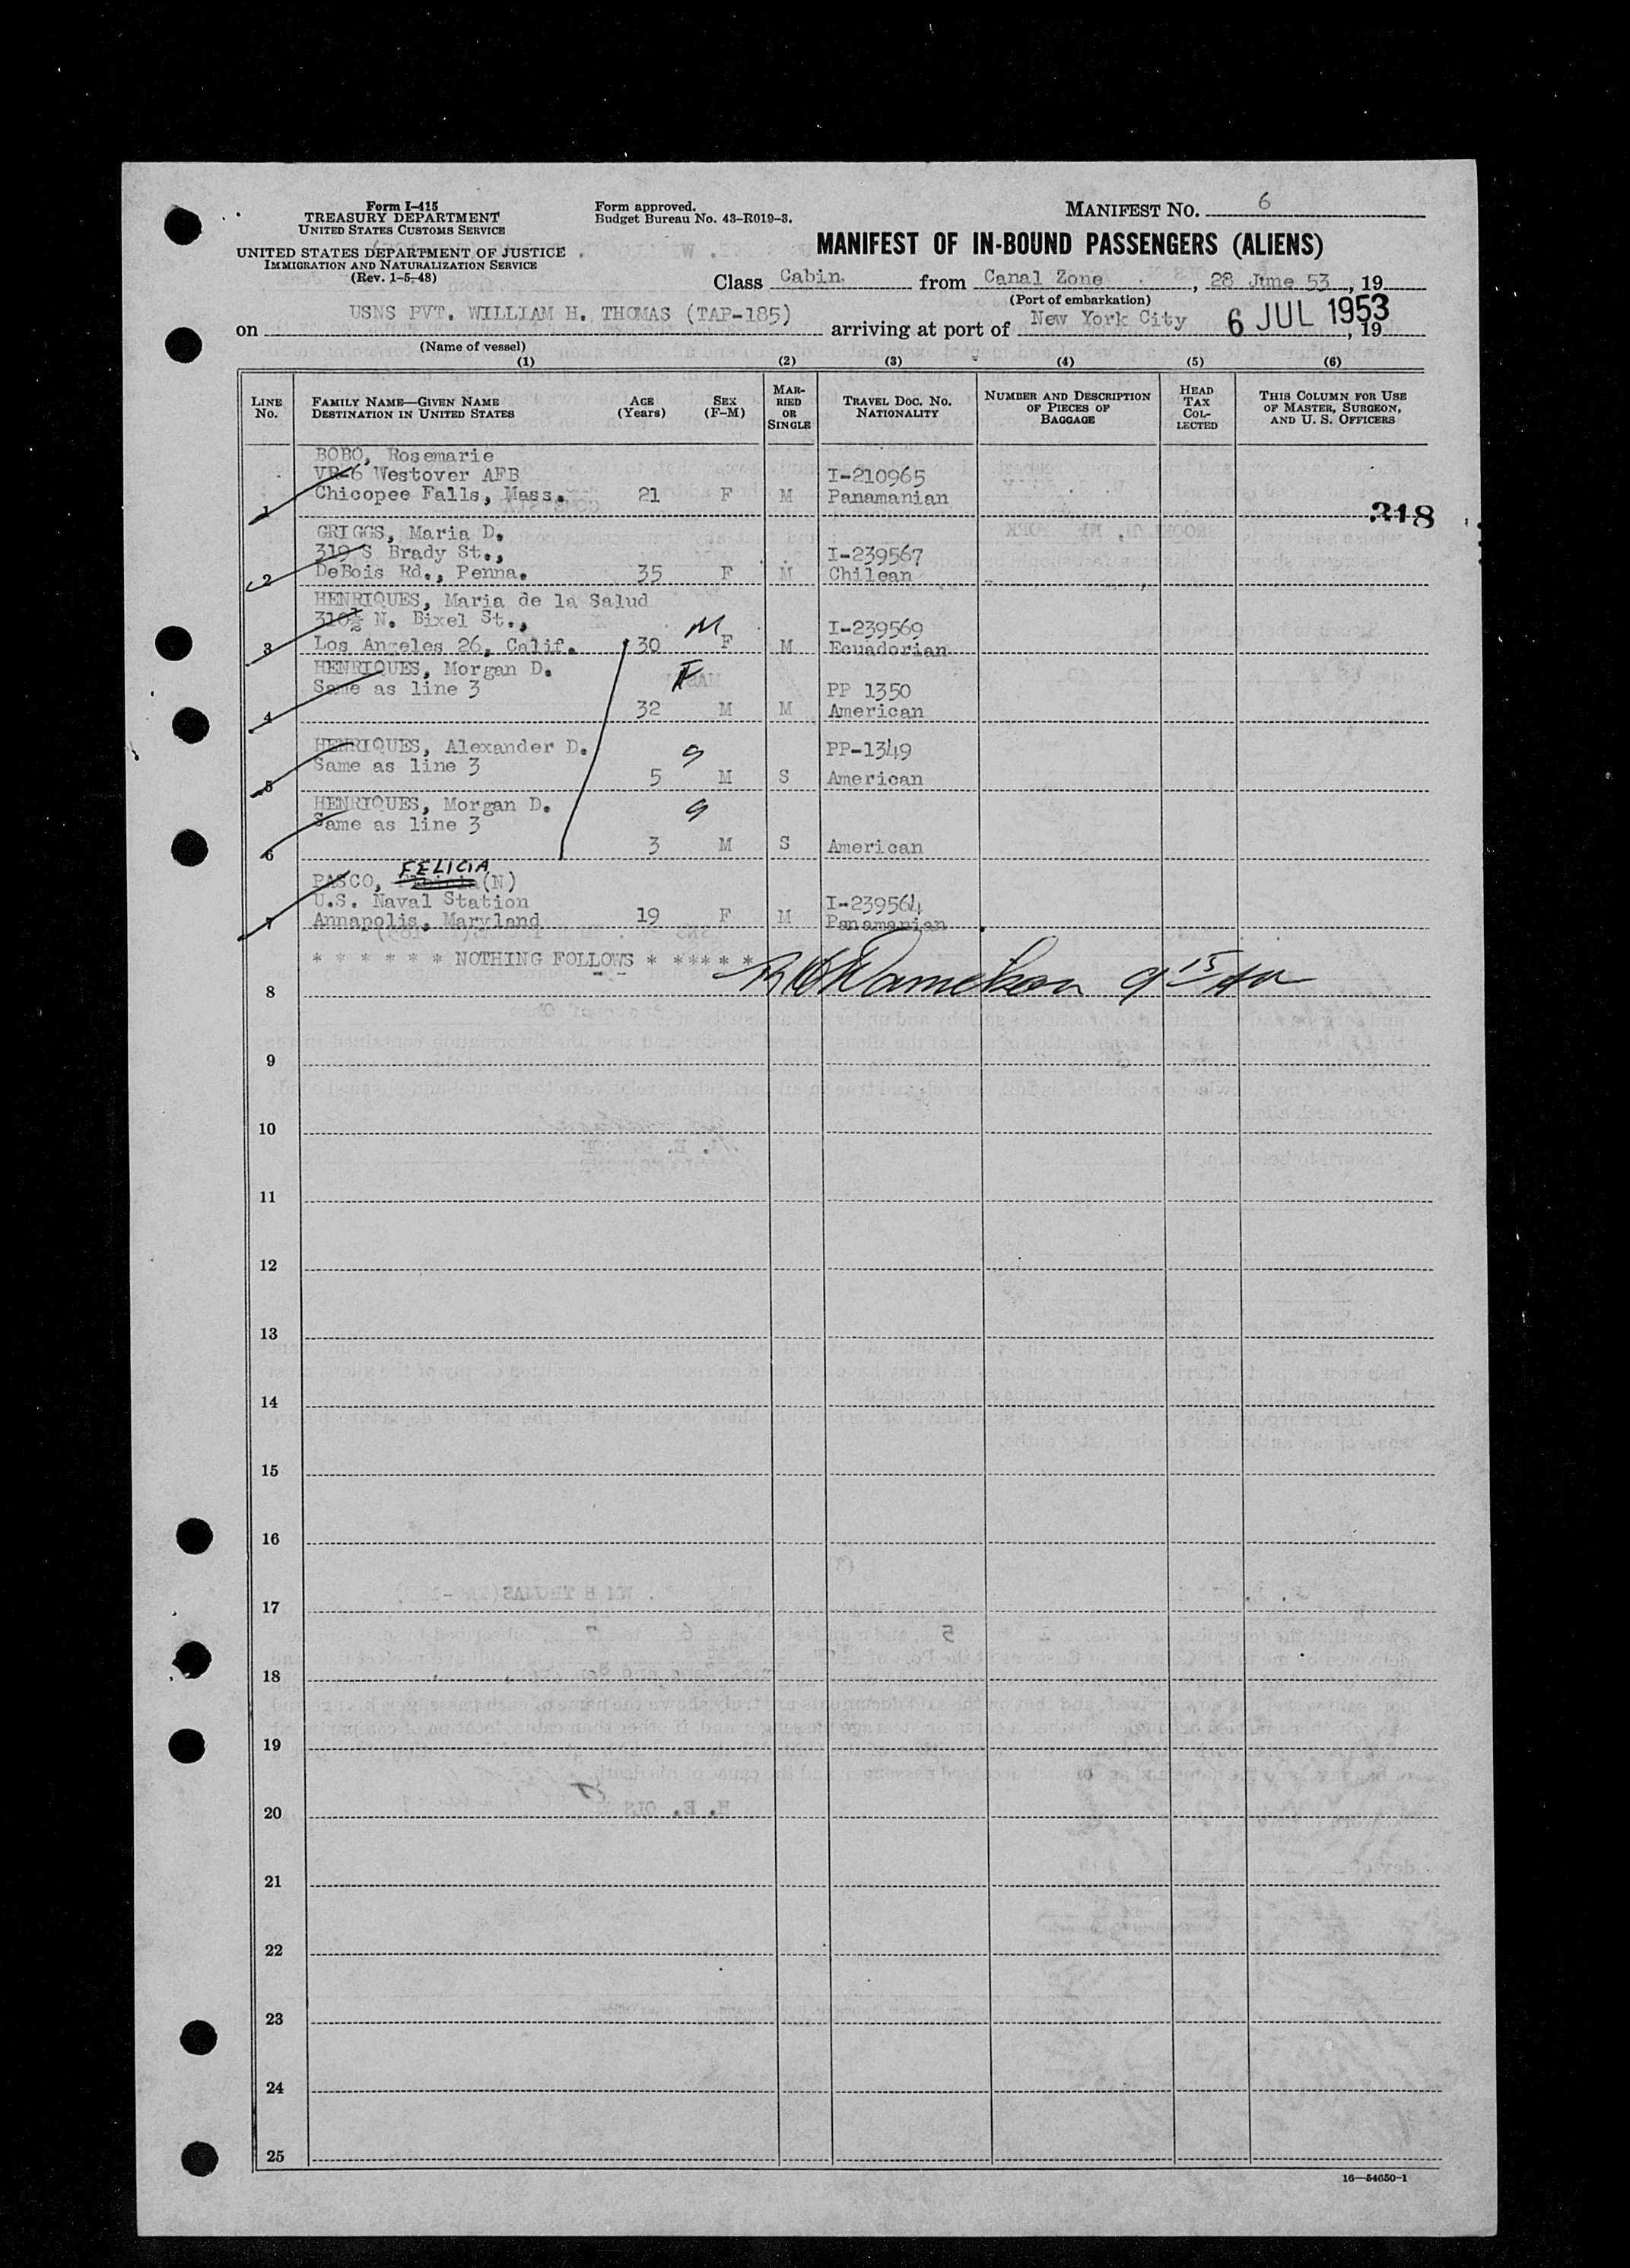 Form I-415
TREASURY DEPARTMENT
UNITED STATES CUSTOMS SERVICE
UNITED STATES DEPARTMENT OF JUSTICE
IMMIGRATION AND NATURALIZATION SERVICE
(Rev. 1-5-48)
Form approved.
Budget Bureau No. 43-R019-3.
MANIFEST NO. 6
MANIFEST OF IN-BOUND PASSENGERS (ALIENS)
Class Cabin from Canal Zone, 28 June 53, 19
(Port of embarkation)
on USNS PVT. WILLIAM H. THOMAS (TAP-185) arriving at port of New York City 6 JUL 1953, 19
(Name of vessel)
(1) (2) (3) (4) (5) (6)
LINE No.
FAMILY NAME—GIVEN NAME
DESTINATION IN UNITED STATES
AGE (Years)
SEX (F-M)
MARRIED OR SINGLE
TRAVEL DOC. NO. NATIONALITY
NUMBER AND DESCRIPTION OF PIECES OF BAGGAGE
HEAD TAX COLLECTED
THIS COLUMN FOR USE OF MASTER, SURGEON, AND U. S. OFFICERS
BOBO, Rosemarie
VR-6 Westover AFB I-210965
1 Chicopee Falls, Mass. 21 F M Panamanian
318
GRIGGS, Maria D.
319 S Brady St., I-239567
2 DeBois Rd., Penna. 35 F M Chilean
HENRIQUES, Maria de la Salud
310½ N. Bixel St., M I-239569
3 Los Angeles 26, Calif. 30 F M Ecuadorian
HENRIQUES, Morgan D. F
Same as line 3 PP 1350
4 32 M M American
HENRIQUES, Alexander D. 9 PP-1349
Same as line 3
5 5 M S American
HENRIQUES, Morgan D. 9
Same as line 3
6 3 M S American
FELICIA
PASCO, (N)
U.S. Naval Station I-239564
7 Annapolis, Maryland 19 F M Panamanian
* * * * * * NOTHING FOLLOWS * * * * * *
8
9
10
11
12
13
14
15
16
17
18
19
20
21
22
23
24
25
16—54650-1